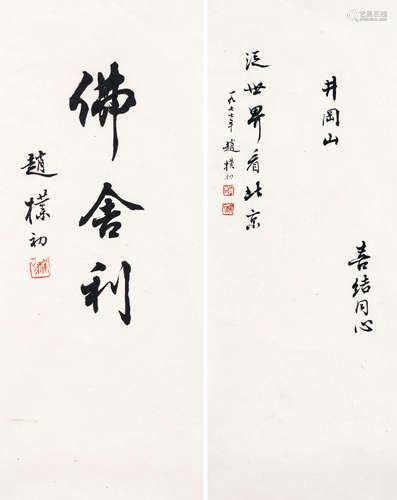 佛舍利
趙樸初
井岡山
喜结同心
從世界看北京
一九七七年 趙樸初